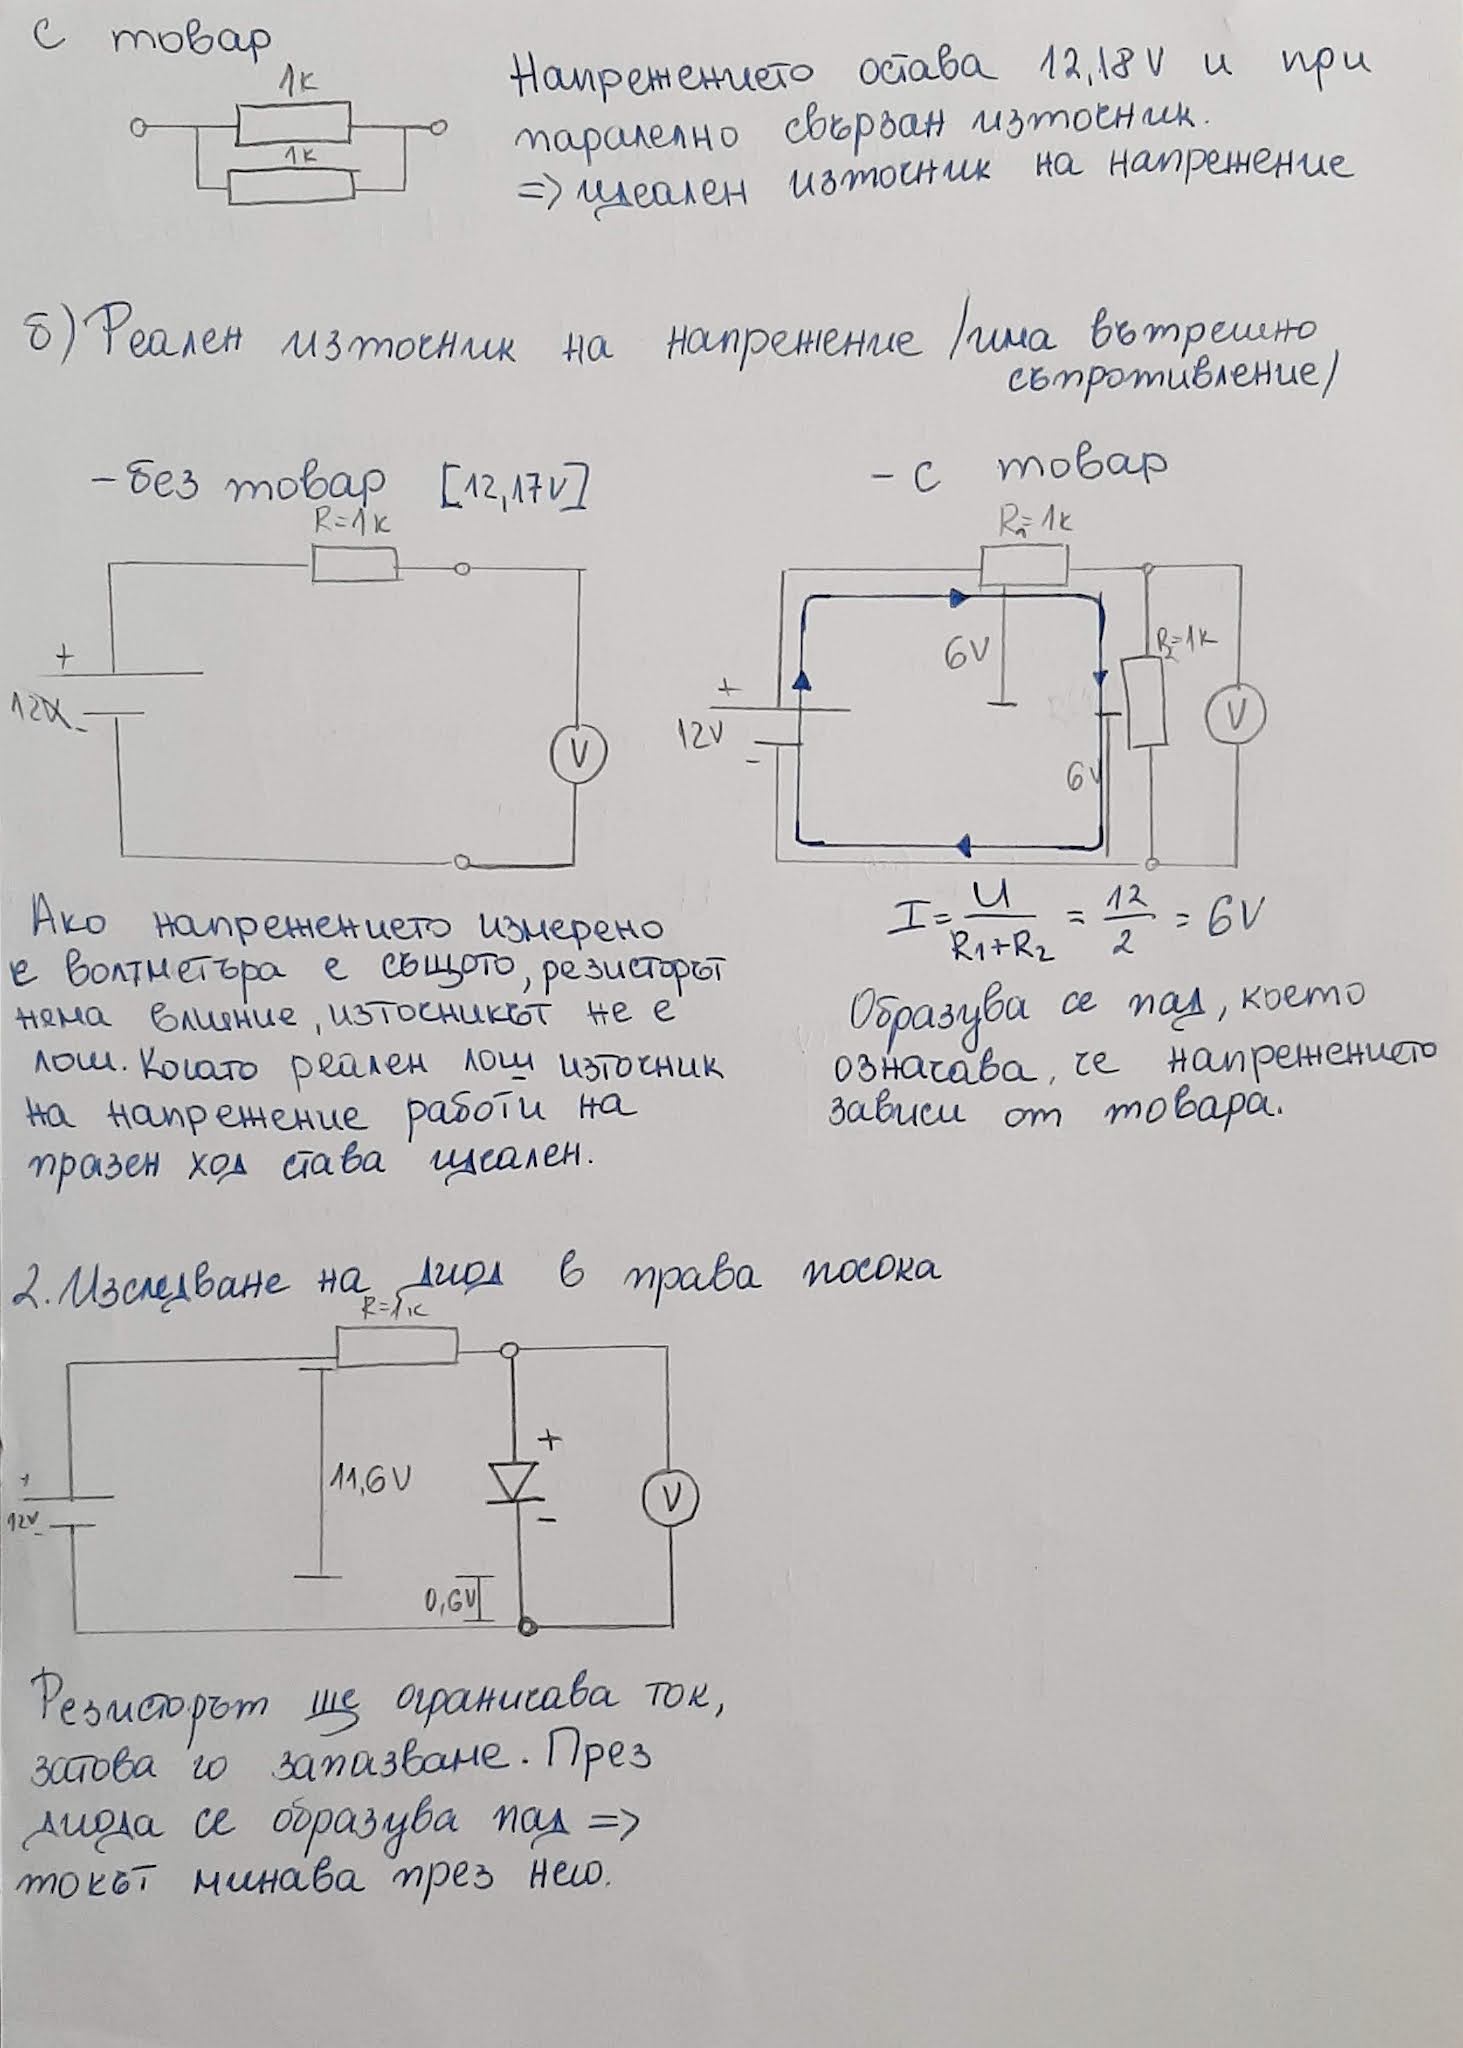 С товар
1к
1к
Напрежението остава 12,18V и при
паралелно свързан източник.
=> идеален източник на напрежение
б) Реален източник на напрежение /има вътрешно
съпротивление/
- без товар [12,17V]
R=1к
+
12V
-
V
Ако напрежението измерено
с волтметъра е същото, резисторът
няма влияние, източникът не е
лош. Когато реален лош източник
на напрежение работи на
празен ход става идеален.
- с товар
R₁=1к
6V
R₂=1к
+
12V
-
6V
V
I = U/(R₁+R₂) = 12/2 = 6V
Образува се пад, което
означава, че напрежението
зависи от товара.
2. Изследване на диод в права посока
R=1к
+
12V
-
11,6V
+
-
V
0,6V
Резисторът ще ограничава ток,
затова го запазване. През
диода се образува пад =>
токът минава през него.